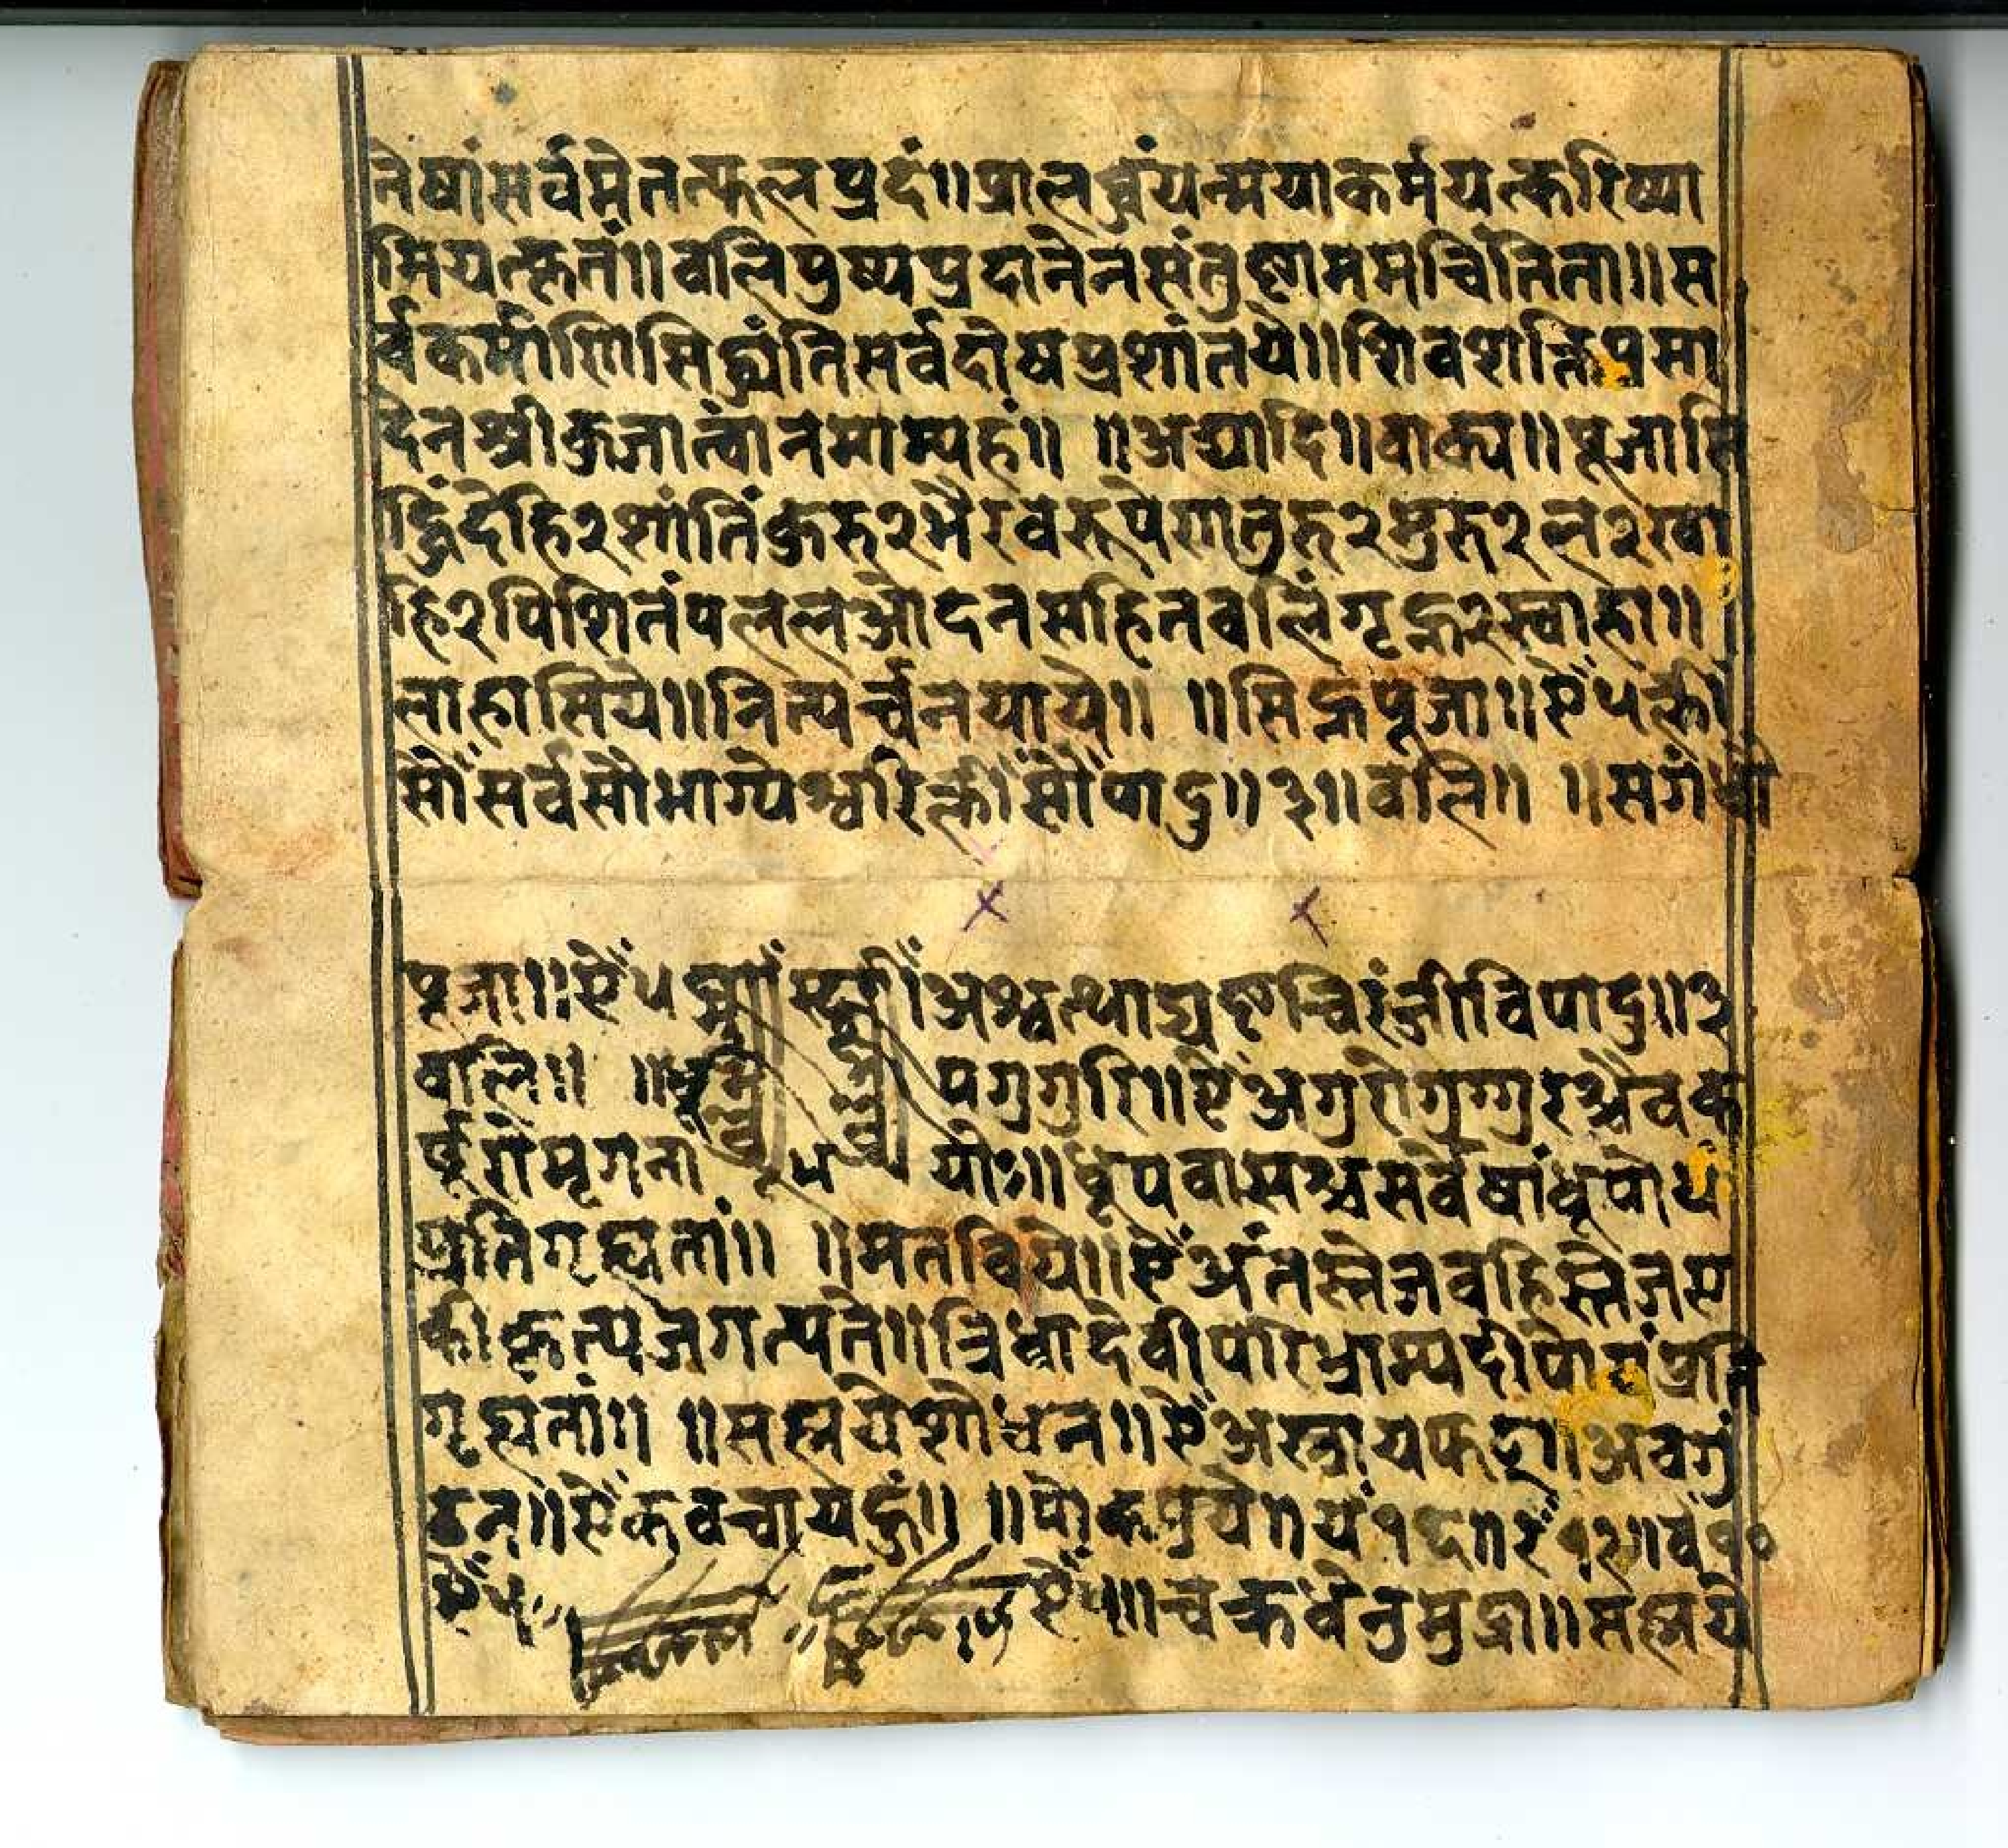 तेषां सर्वमेतत्फलप्रदं ॥ प्रालब्धं यन्मया कर्म यत्करिष्या
मि यत्कृतं ॥ वलिपुष्पप्रदानेन संतुष्टा मम चिंतिता ॥ स
र्वकर्माणि सिद्ध्यंति सर्वदोष प्रशांतये ॥ शिवशक्तिप्रसा
देन श्रीकुजांत्वां नमाम्यहं ॥ ॥ अद्यादि ॥ वाक्य ॥ पूजासि
द्धिं देहि २ शांतिं कुरु २ भैरवरूपेण तुरु २ मुरु २ ल २ खा
हि २ पिशितं पललओदनसहित वलिं गृह्ण २ स्वाहा ॥
लाहासिये ॥ नित्यर्च्चनयाये ॥ ॥ सिद्धपूजा ॥ ऐँ ५ क्लीँ
सौँ सर्वसौभाग्येश्वरि क्लीँ सौँ पादु ॥ ३ ॥ वलि ॥ ॥ सगं
पूजा ॥ ऐँ ५ अश्वत्थाद्यष्टचिरंजीवि पादु ॥ ३
वलि ॥ ॥ धू पगुगुरि ॥ ऐँ अगुरो गुग्गुरश्चैव क
र्पूरो मृगना भ यो ॥ धूपवासश्च सर्वेषां धूपोयं
प्रतिगृह्यतां ॥ ॥ मतविये ॥ ऐँ अंतस्तेज वहिस्तेज स
कीकृत्य जगत्पते ॥ त्रिधा देवी परिभ्राम्य दीपोयं प्रति
गृह्यतां ॥ ॥ सह्नये शोधन ॥ ऐँ अस्त्राय फट् ॥ अवगुं
ठन ॥ ऐँ कवचाय हुं ॥ ॥ यं १६ ॥ रं १२ ॥ वं १०
ऐँ ५ ऐँ ५ ॥ चक्रधेनुमुद्रा ॥ सह्नये